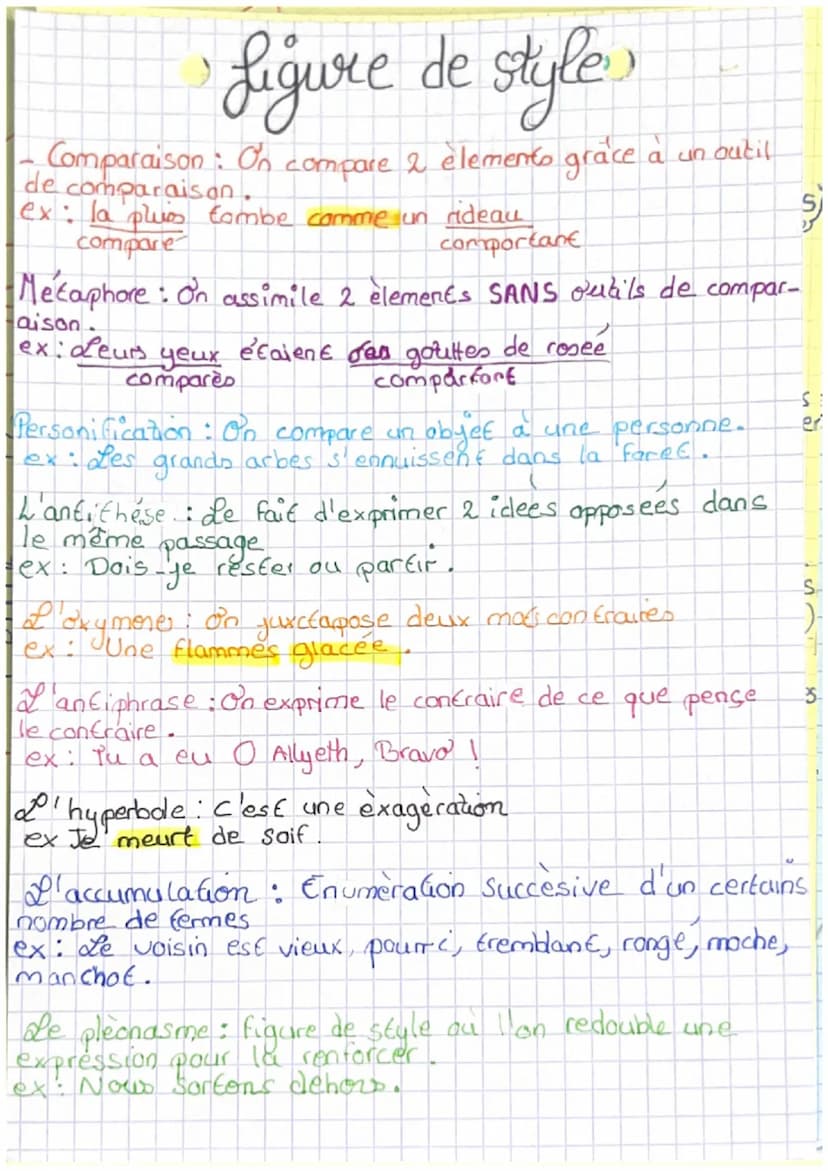 figure de style
- Comparaison : On compare 2 èlements grâce à un outil
de comparaison.
ex : la pluis tombe comme un rideau
comparé comportant
Métaphore : On assimile 2 èlements SANS outils de compar-
aison.
ex : Leurs yeux étaient des gouttes de roseé
comparès comparfont
Personification : On compare un objet à une personne.
ex : Les grands arbes s'ennuissent dans la foret.
L'antithése : Le fait d'exprimer 2 idees opposeés dans
le même passage
ex : Dois-je rester ou partir.
L'oxymere : On juxctapose deux mots contraires
ex : Une flammes glacée.
L'antiphrase : On exprime le contraire de ce que pense
le contraire.
ex : Tu a eu 0 Allyeth, Bravo !
L'hyperbole : C'est une èxagèration
ex Je meurt de soif.
L'accumulation : Enumèration Succèsive d'un certains
nombre de termes
ex : Le voisin est vieux, pourri, tremblant, rongé, moche,
manchot.
Le plèonasme : figure de style où l'on redouble une
expréssion pour la renforcer.
ex : Nous Sortons dehors.